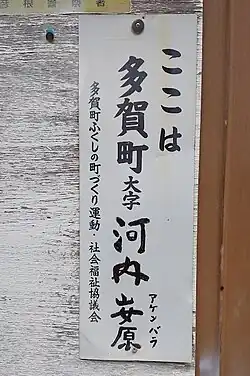 彦根警察署
ここは
多賀町大字河内安原
アケンバラ
多賀町ふくしの町づくり運動・社会福祉協議会